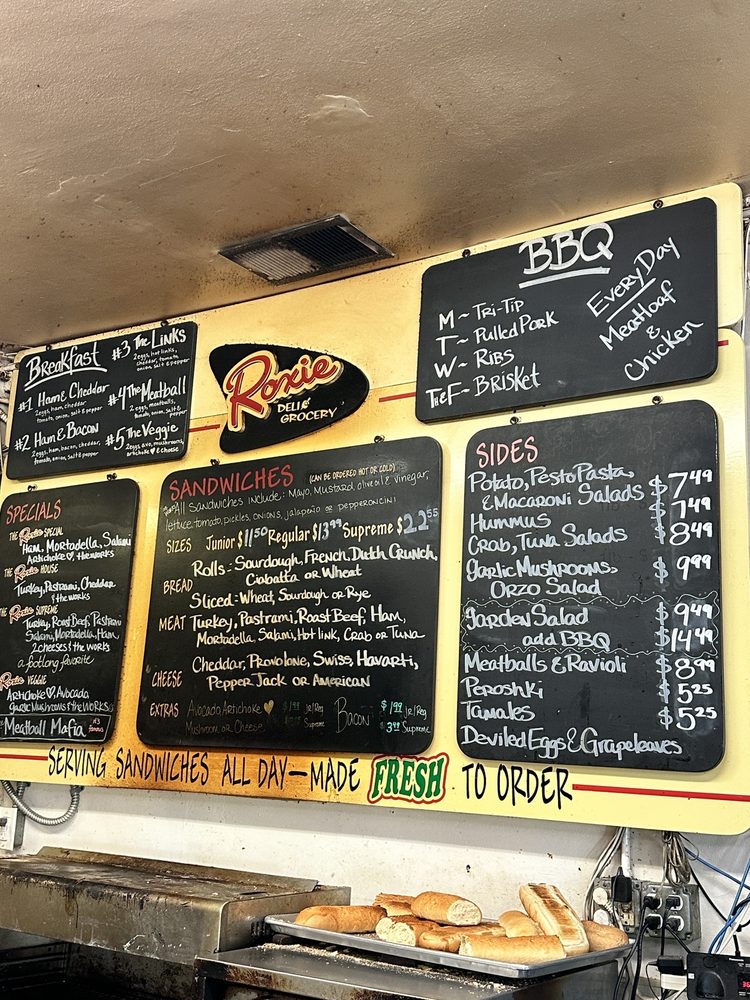 Breakfast
#1 Ham & Cheddar
2 eggs, ham, cheddar
tomato, onion, salt & pepper
#2 Ham & Bacon
2 eggs, ham, bacon, cheddar,
tomato, onion, salt & pepper
#3 The Links
2 eggs, hot links,
cheddar, tomato
onion, salt & pepper
#4 The Meatball
2 eggs, meatballs,
tomato, onion, salt &
pepper
#5 The Veggie
artichoke ♥ & cheese
Roxie
DELI & GROCERY
BBQ
M ~ Tri-Tip
T ~ Pulled Pork
W ~ Ribs
TH & F ~ Brisket
Every Day
Meatloaf
&
Chicken
SPECIALS
THE Roxie SPECIAL
Ham, Mortadella, Salami
Artichoke ♥, & the works
THE Roxie HOUSE
Turkey, Pastrami, Cheddar
& the works
THE Roxie SUPREME
Turkey, Roast Beef, Pastrami
Salami, Mortadella, Ham,
2 cheeses & the works
a footlong favorite
Roxie VEGGIE
Artichoke ♥, Avocado,
garlic Mushrooms & the WORKS
Meatball Mafia
SANDWICHES (CAN BE ORDERED HOT OR COLD)
All Sandwiches include: Mayo, Mustard, olive oil & vinegar,
lettuce, tomato, pickles, onions, jalapeño or pepperoncini
SIZES Junior $11.50 Regular $13.99 Supreme $22.55
BREAD Rolls: Sourdough, French, Dutch Crunch,
Ciabatta or Wheat
Sliced: Wheat, Sourdough or Rye
MEAT Turkey, Pastrami, Roast Beef, Ham,
Mortadella, Salami, Hot link, Crab or Tuna
CHEESE Cheddar, Provolone, Swiss, Havarti,
Pepper Jack or American
EXTRAS Avocado, Artichoke ♥ $1.99 Jr/Reg
Mushroom or Cheese Supreme
Bacon $1.99 Jr/Reg
$3.99 Supreme
SIDES
Potato, Pesto Pasta,
& Macaroni Salads $7.49
Hummus $7.49
Crab, Tuna Salads $8.49
Garlic Mushrooms,
Orzo Salad $9.99
Garden Salad $9.49
add BBQ $14.49
Meatballs & Ravioli $8.99
Peroshki $5.25
Tamales $5.25
Deviled Eggs & Grapeleaves
SERVING SANDWICHES ALL DAY—MADE FRESH TO ORDER